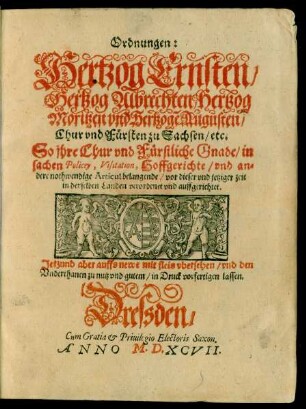 Ordnungen:
Hertzog Ernsten/
Hertzog Albrechten/Hertzog
Moritzen vnd Hertzoge Augusten/
Chur vnd Fürsten zu Sachsen/etc.
So jhre Chur vnd Fürstliche Gnade/in
sachen Policey, Visitation, Hoffgerichte/vnd an-
dere nothwendige Articul belangende/vor dieser vnd jetziger zeit
in derselben Landen verordenet vnd auffgerichtet.
Jetzund aber auffs newe mit fleis vbersehen/vnd den
Vnderthanen zu nutz vnd gutem/in Druck vorfertigen lassen.
Dreßden/
Cum Gratia & Privilegio Electoris Saxon.
ANNO M. D. XCVII.